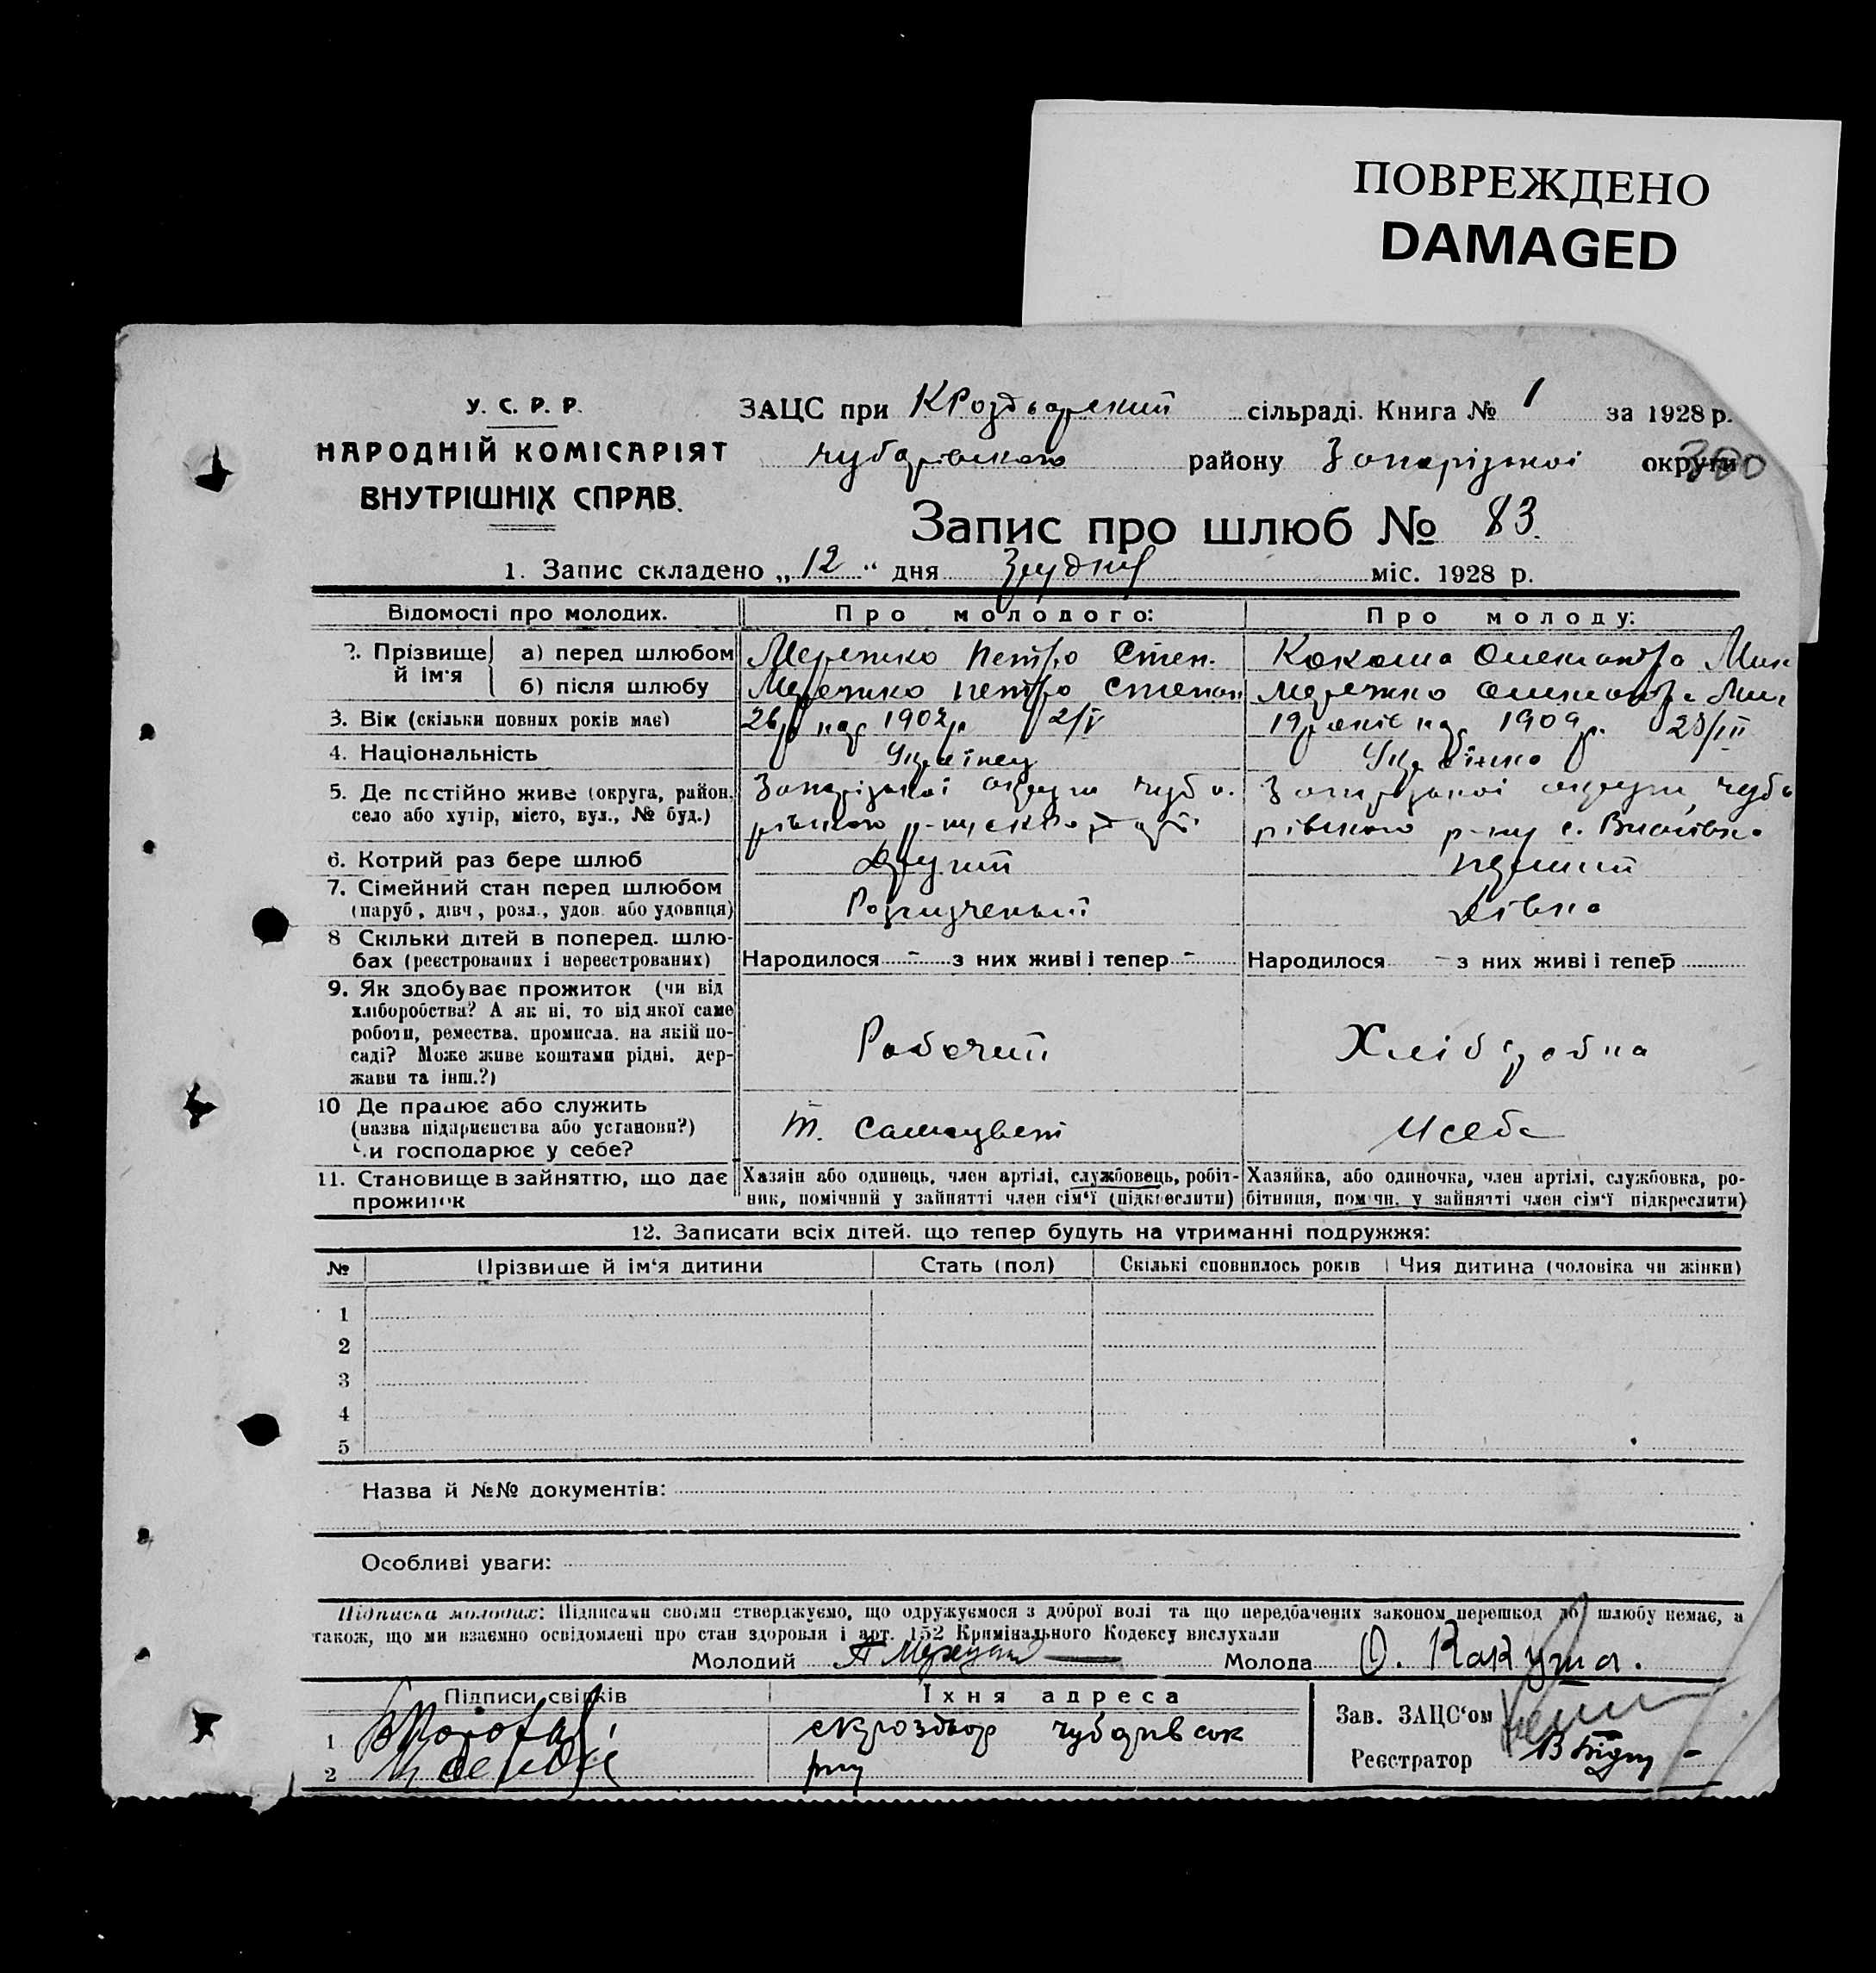 ПОВРЕЖДЕНО
DAMAGED
У. С. Р. Р.
НАРОДНІЙ КОМІСАРІЯТ
ВНУТРІШНІХ СПРАВ.
ЗАЦС при сільраді. Книга № 1 за 1928 р.
Чубарівського району Запорізької округи
300
Запис про шлюб № 83.
1. Запис складено „12“ дня Грудня міс. 1928 р.
Відомості про молодих. Про молодого: Про молоду:
2. Прізвище й ім'я
а) перед шлюбом Мережко Петро Степ. Олександра Мик
б) після шлюбу Мережко Петро Степан Мережко Олександра Мик
3. Вік (скільки повних років має) 26 р нар 1902 р 2/IV 19 років нар 1909 р. 23/III
4. Національність Українец Українка
5. Де постійно живе (округа, район, село або хутір, місто, вул., № буд.)
Запорізької округи Чуба-
рівського р-ну
Запорізької округи, Чуба
рівського р-ну с.
6. Котрий раз бере шлюб Другий перший
7. Сімейний стан перед шлюбом
(паруб., дівч., розл., удов. або удовиця) дівка
8 Скільки дітей в поперед. шлю-
бах (реєстрованих і нереєстрованих) Народилося - з них живі і тепер - Народилося - з них живі і тепер
9. Як здобуває прожиток (чи від
хліборобства? А як ні, то від якої саме
роботи, ремества, промисла, на якій по-
саді? Може живе коштами рідні, дер-
жави та інш.?)
Робочий Хлібробка
10 Де працює або служить
(назва підприємства або установи?)
Чи господарює у себе?
т. Самоцвет У себе
11. Становище в зайняттю, що дає
прожиток
Хазяїн або одинець, член артілі, службовець, робіт-
ник, помічний у зайнятті член сім'ї (підкреслити)
Хазяйка, або одиночка, член артілі, службовка, ро-
бітниця, помічн. у зайнятті член сім'ї підкреслити)
12. Записати всіх дітей, що тепер будуть на утриманні подружжя:
№ Прізвище й ім'я дитини Стать (пол) Скількі сповнилось років Чия дитина (чоловіка чи жінки)
1
2
3
4
5
Назва й №№ документів:
Особливі уваги:
Підписка молодих: Підписами своїми стверджуємо, що одружуємося з доброї волі та що передбачених законом перешкод до шлюбу немає, а
також, що ми взаємно освідомлені про стан здоровля і арт. 152 Кримінального Кодексу вислухали
Молодий Молода О. Какуша.
Підписи свідків Їхня адреса
1
2
Зав. ЗАЦС'ом
Реєстратор